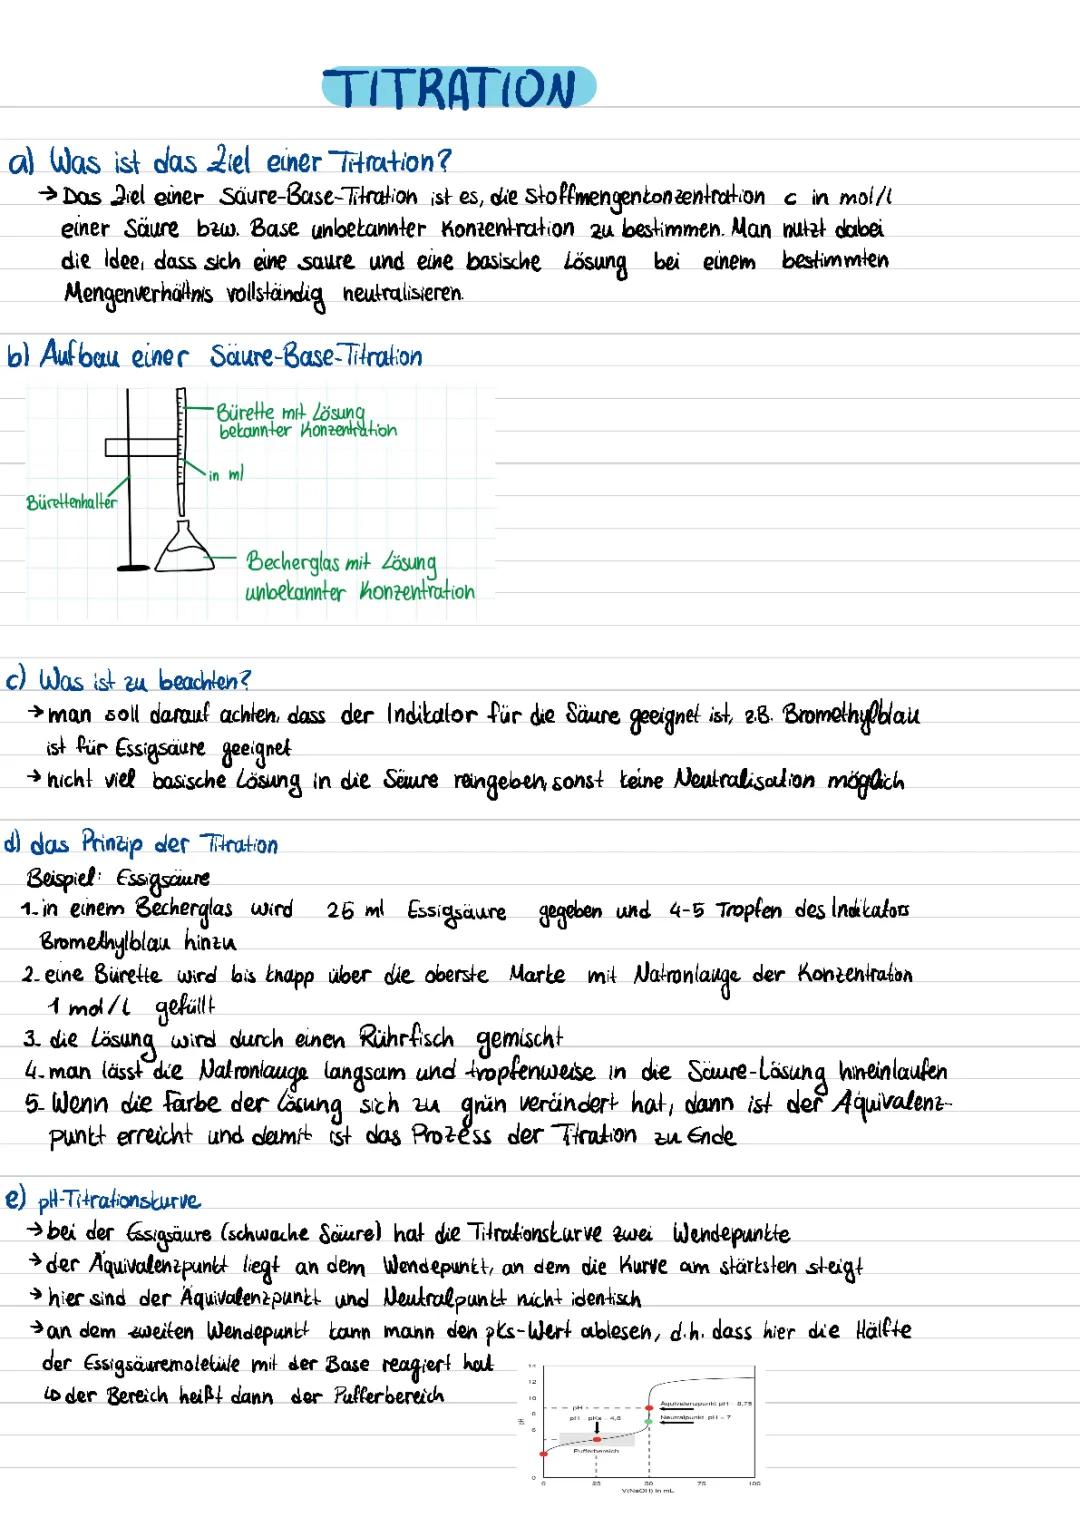 TITRATION
a) Was ist das Ziel einer Titration?
→ Das Ziel einer Säure-Base-Titration ist es, die Stoffmengenkonzentration c in mol/l
einer Säure bzw. Base unbekannter Konzentration zu bestimmen. Man nutzt dabei
die Idee, dass sich eine saure und eine basische Lösung bei einem bestimmten
Mengenverhältnis vollständig neutralisieren.
b) Aufbau einer Säure-Base-Titration
Bürette mit Lösung
bekannter Konzentration
in ml
Bürettenhalter
Becherglas mit Lösung
unbekannter Konzentration
c) Was ist zu beachten?
→ man soll darauf achten, dass der Indikator für die Säure geeignet ist, z.B. Bromethylblau
ist für Essigsäure geeignet
→ nicht viel basische Lösung in die Säure reingeben, sonst keine Neutralisation möglich
d) das Prinzip der Titration
Beispiel: Essigsäure
1. in einem Becherglas wird 25 ml Essigsäure gegeben und 4-5 Tropfen des Indikators
Bromethylblau hinzu
2. eine Bürette wird bis knapp über die oberste Marke mit Natronlauge der Konzentration
1 mol/l gefüllt
3. die Lösung wird durch einen Rührfisch gemischt
4. man lässt die Natronlauge langsam und tropfenweise in die Säure-Lösung hineinlaufen
5. Wenn die Farbe der Lösung sich zu grün verändert hat, dann ist der Äquivalenz-
punkt erreicht und damit ist das Prozess der Titration zu Ende
e) pH-Titrationskurve
→ bei der Essigsäure (schwache Säure) hat die Titrationskurve zwei Wendepunkte
→ der Äquivalenzpunkt liegt an dem Wendepunkt, an dem die Kurve am stärksten steigt
→ hier sind der Äquivalenzpunkt und Neutralpunkt nicht identisch
→ an dem zweiten Wendepunkt kann mann den pks-Wert ablesen, d.h. dass hier die Hälfte
der Essigsäuremoleküle mit der Base reagiert hat
↳ der Bereich heißt dann der Pufferbereich
14
12
10
pH
Äquivalenzpunkt pH = 8,75
8
pH = pKs = 4,8
Neutralpunkt pH = 7
pH
6
Pufferbereich
0
0 25 50 75 100
V(NaOH) in mL